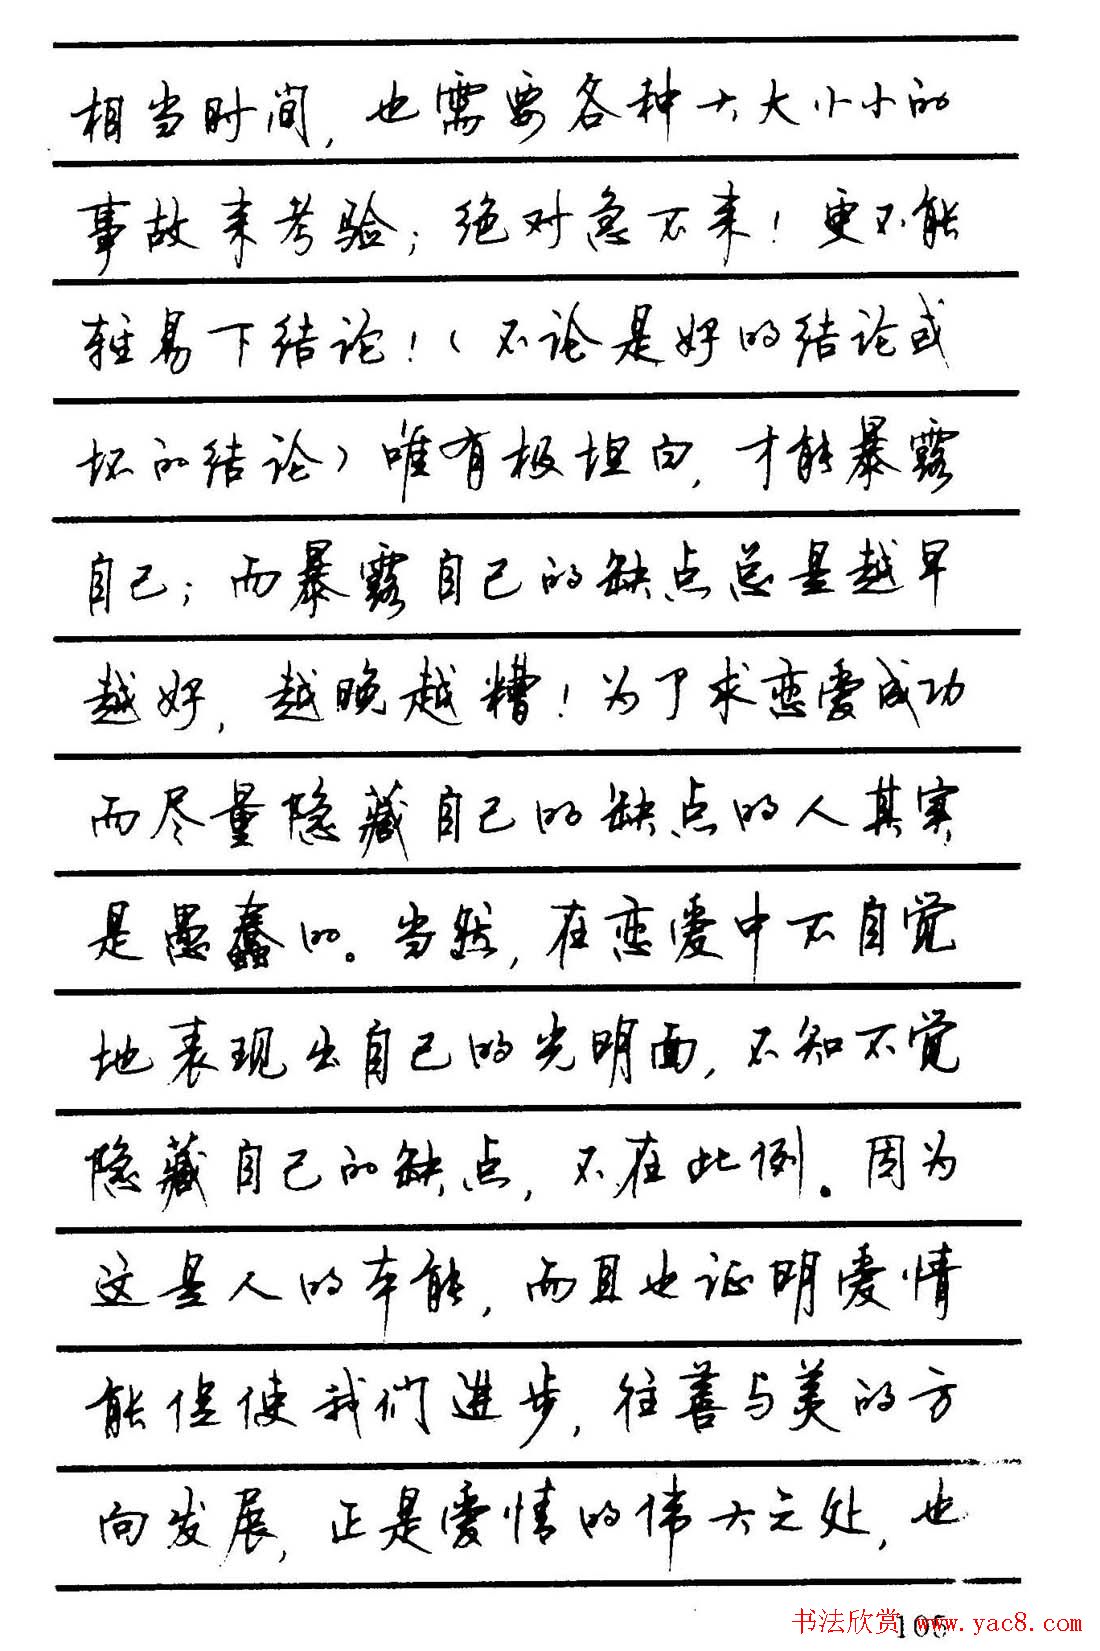 相当时间，也需要各种大大小小的
事故来考验；绝对急不来！更不能
轻易下结论！（不论是好的结论或
坏的结论）唯有极坦白，才能暴露
自己；而暴露自己的缺点总是越早
越好，越晚越糟！为了求恋爱成功
而尽量隐藏自己的缺点的人其实
是愚蠢的。当然，在恋爱中不自觉
地表现出自己的光明面，不知不觉
隐藏自己的缺点，不在此例。因为
这是人的本能，而且也证明爱情
能促使我们进步，往善与美的方
向发展，正是爱情的伟大之处，也
书法欣赏 www.yac8.com
105